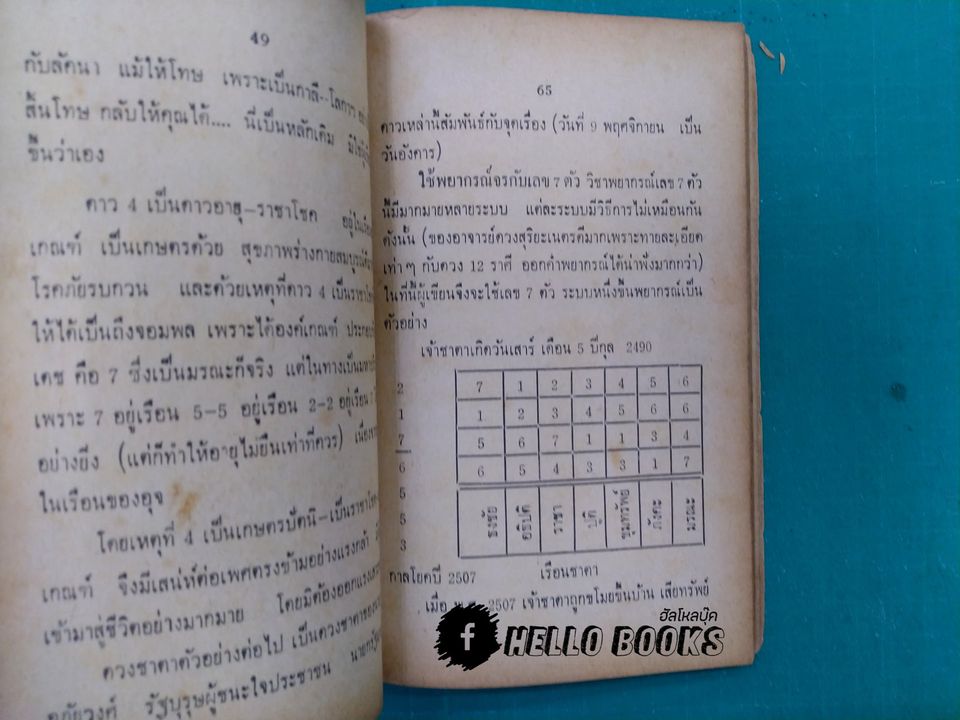 49
กับลัคนา แม้ให้โทษ เพราะเป็นกาลี--โลกาวา
สิ้นโทษ กลับให้คุณได้.... นี่เป็นหลักเดิม มิใช่
ขึ้นว่าเอง
ดาว 4 เป็นดาวอายุ-ราชาโชค อยู่ใน
เกณฑ์ เป็นเกษตรด้วย สุขภาพร่างกายสมบูรณ์
โรคภัยรบกวน และด้วยเหตุที่ดาว 4 เป็นราชา
ให้ได้เป็นถึงจอมพล เพราะได้องค์เกณฑ์ ประกอบ
เดช คือ 7 ซึ่งเป็นมรณะก็จริง แต่ในทางเป็น
เพราะ 7 อยู่เรือน 5-5 อยู่เรือน 2-2 อยู่เรือน 7
อย่างยิ่ง (แต่ก็ทำให้อายุไม่ยืนเท่าที่ควร)
ในเรือนของอุจ
โดยเหตุที่ 4 เป็นเกษตรปัตนิ-เป็นราชา
เกณฑ์ จึงมีเสน่ห์ต่อเพศตรงข้ามอย่างแรงกล้า
เข้ามาสู่ชีวิตอย่างมากมาย โดยมิต้องออกแรง
ดวงชาตาตัวอย่างต่อไป เป็นดวงชาตาของ
อภัยวงศ์ รัฐบุรุษผู้ชนะใจประชาชน
65
ดาวเหล่านี้สัมพันธ์กับจุดเรื่อง (วันที่ 9 พฤศจิกายน เป็น
วันอังคาร)
ใช้พยากรณ์จรกับเลข 7 ตัว วิชาพยากรณ์เลข 7 ตัว
นี้มีมากมายหลายระบบ แต่ละระบบมีวิธีการไม่เหมือนกัน
ดังนั้น (ของอาจารย์ดวงสุริยะเนตรดีมากเพราะทายละเอียด
เท่า ๆ กับดวง 12 ราศี ออกคำพยากรณ์ได้น่าฟังมากกว่า)
ในที่นี้ผู้เขียนจึงจะใช้เลข 7 ตัว ระบบหนึ่งขึ้นพยากรณ์เป็น
ตัวอย่าง
เจ้าชาตาเกิดวันเสาร์ เดือน 5 ปีกุล 2490
2 7 1 2 3 4 5 6
1 1 2 3 4 5 6 6
7 5 6 7 1 1 3 4
6 6 5 4 3 3 1 7
5
5
3
ธงชัย อธิบดี ราชา ปูติ ขุมทรัพย์ ภังคะ มรณะ
กาลโยคปี 2507 เรือนชาตา
เมื่อ 2507 เจ้าชาตาถูกขโมยขึ้นบ้าน เสียทรัพย์
ฮัลโหลบุ๊ค
f HELLO BOOKS